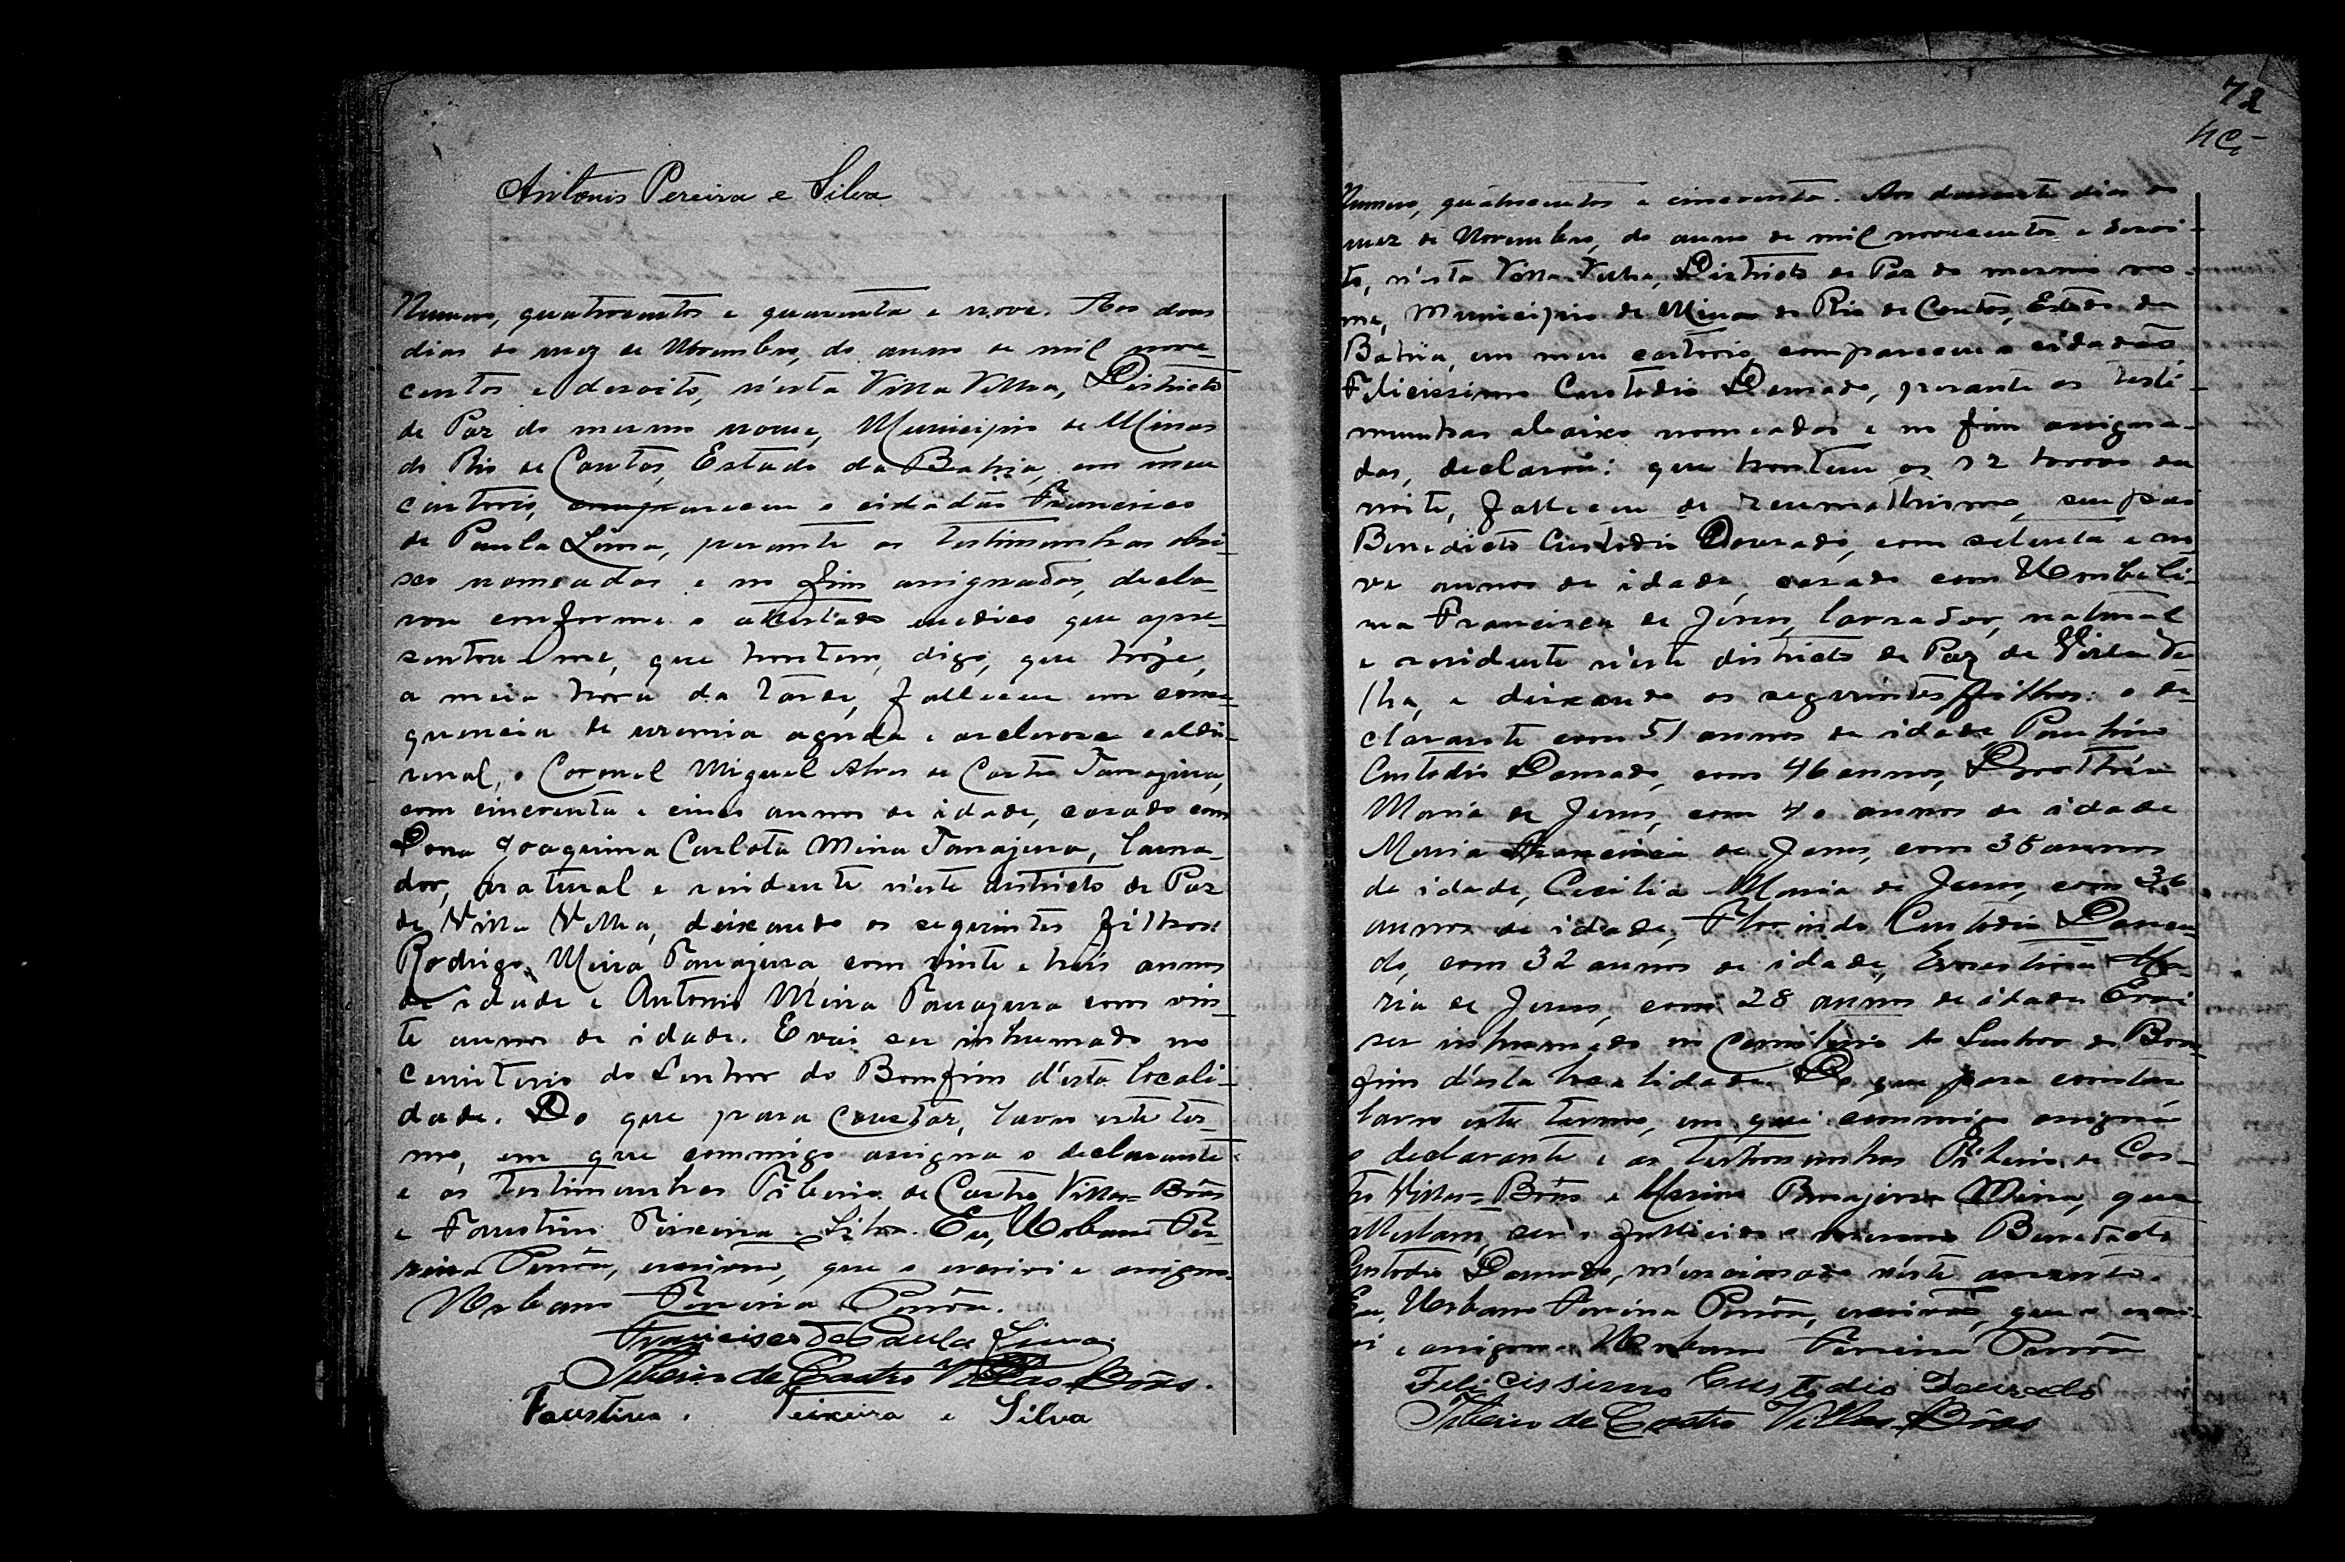 Antonio Pereira e Silva
Numero, quatrocentos e quarenta e nove. Aos dous
dias do mez de Novembro, do anno de mil nove-
centos e dezoito, n'esta Villa Velha, Districto
de Paz do mesmo nome, Municipio de Minas
do Rio de Contas, Estado da Bahia, em meu
cartorio, compareceu o cidadão Francisco
de Paula Lima, perante as testimunhas abai-
xo nomeadas e no fim assignados, decla-
rou conforme o attestado medico que apre-
sentou-me, que hontem, digo, que hoje,
a meia hora da tarde, falleceu em conse-
quencia de uremia aguda e esclerose cardio-
renal, o Coronel Miguel Alves de Castro Tanajura,
com cincoenta e cinco annos de idade, casado com
Dona Joaquina Carlota Meira Tanajura, lavra-
dor, natural e residente n'este districto de Paz
de Villa Velha, deixando os seguintes filhos:
Rodrigo Meira Tanajura com vinte e tres annos
de idade e Antonio Meira Tanajura com vin-
te annos de idade. E vai ser inhumado no
cemiterio do Senhor do Bomfim d'esta locali-
dade. Do que para constar, lavro este ter-
mo, em que commigo assigna o declarante
e as testimunhas Tiberio de Castro Villas=Bôas
e Faustino Teixeira e Silva. Eu, Urbano Fer-
reira Peixôto, escrivão, que o escrevi e assigno.
Urbano Ferreira
Francisco de Paula Lima.
Tiberio de Castro Villas Bôas.
Faustino. Teixeira e Silva
72
Numero, quatrocentos e cincoenta. Aos dias do
mez de Novembro, do anno de mil novecentos e dezoi-
to, n'esta Villa Velha, Districto de Paz do mesmo no-
me, Municipio de Minas do Rio de Contas, Estado da
Bahia, em meu cartorio, compareceu o cidadão
Felicissimo Custodio Dourado, perante as testi-
munhas abaixo nomeadas e no fim assigna-
das, declarou: que hontem as 12 horas da
noite, falleceu de reumathismo, seu pai
Benedicto Custodio Dourado, com setenta e no-
ve annos de idade, casado com Umbeli-
na Francisca de Jesus, lavrador, natural
e residente n'este districto de Paz de Villa Ve-
lha, e deixando os seguintes filhos: o de-
clarante com 51 annos de idade,
Custodio Dourado, com 46 annos, Dorothéa
Maria de Jesus, com 40 annos de idade
Maria Francisca de Jesus, com 35 annos
de idade, Cecilia Maria de Jesus, com 36
annos de idade, Florindo Custodio Doura-
do, com 32 annos de idade, Ernestina Ma-
ria de Jesus, com 28 annos de idade. E vai
ser inhumado no Cemiterio do Senhor do Bom-
fim d'esta localidade. Do que para constar
lavro este termo, em que commigo assigna
o declarante e as testimunhas Tiberio de Cas-
tro Villas=Bôas e Tanajura Meira, que
ser o fallecido o mesmo Benedicto
Custodio Dourado, mencionado n'este assento.
Eu, Urbano Ferreira, escrivão, que o escre-
vi e assigno. Urbano Ferreira
Felicissimo Custodio Dourado
Tiberio de Castro Villas Bôas